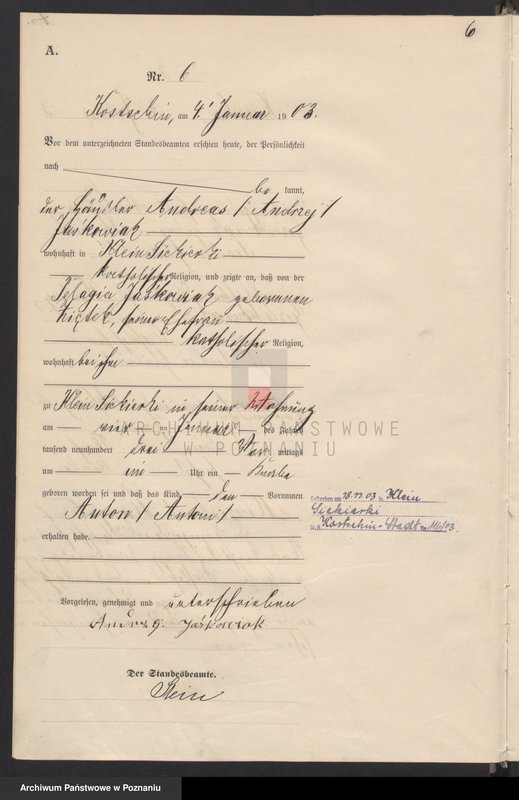 6
A.
Nr. 6
Kostschin, am 4. Januar 1903.
Vor dem unterzeichneten Standesbeamten erschien heute, der Persönlichkeit
nach
be kannt,
der Häusler Andreas /Andrzej/
Jaśkowiak
wohnhaft in Klein Siekierki
katholischer Religion, und zeigte an, daß von der
Pelagia Jaśkowiak geborenen
Ziętek, seiner Ehefrau
katholischer Religion,
wohnhaft bei ihm
zu Klein Siekierki in seiner Wohnung
am vier ten Januar des Jahres
tausend neunhundert drei Vor mittags
um ein Uhr ein Knabe
geboren worden sei und daß das Kind den Vornamen
Anton /Antoni/
erhalten habe.
Vorgelesen, genehmigt und unterschrieben
Andrzej Jaśkowiak
Der Standesbeamte.
Klein
Siekierki
Kostschin-Stadt
ARCHIWUM PAŃSTWOWE
W POZNANIU
Archiwum Państwowe w Poznaniu